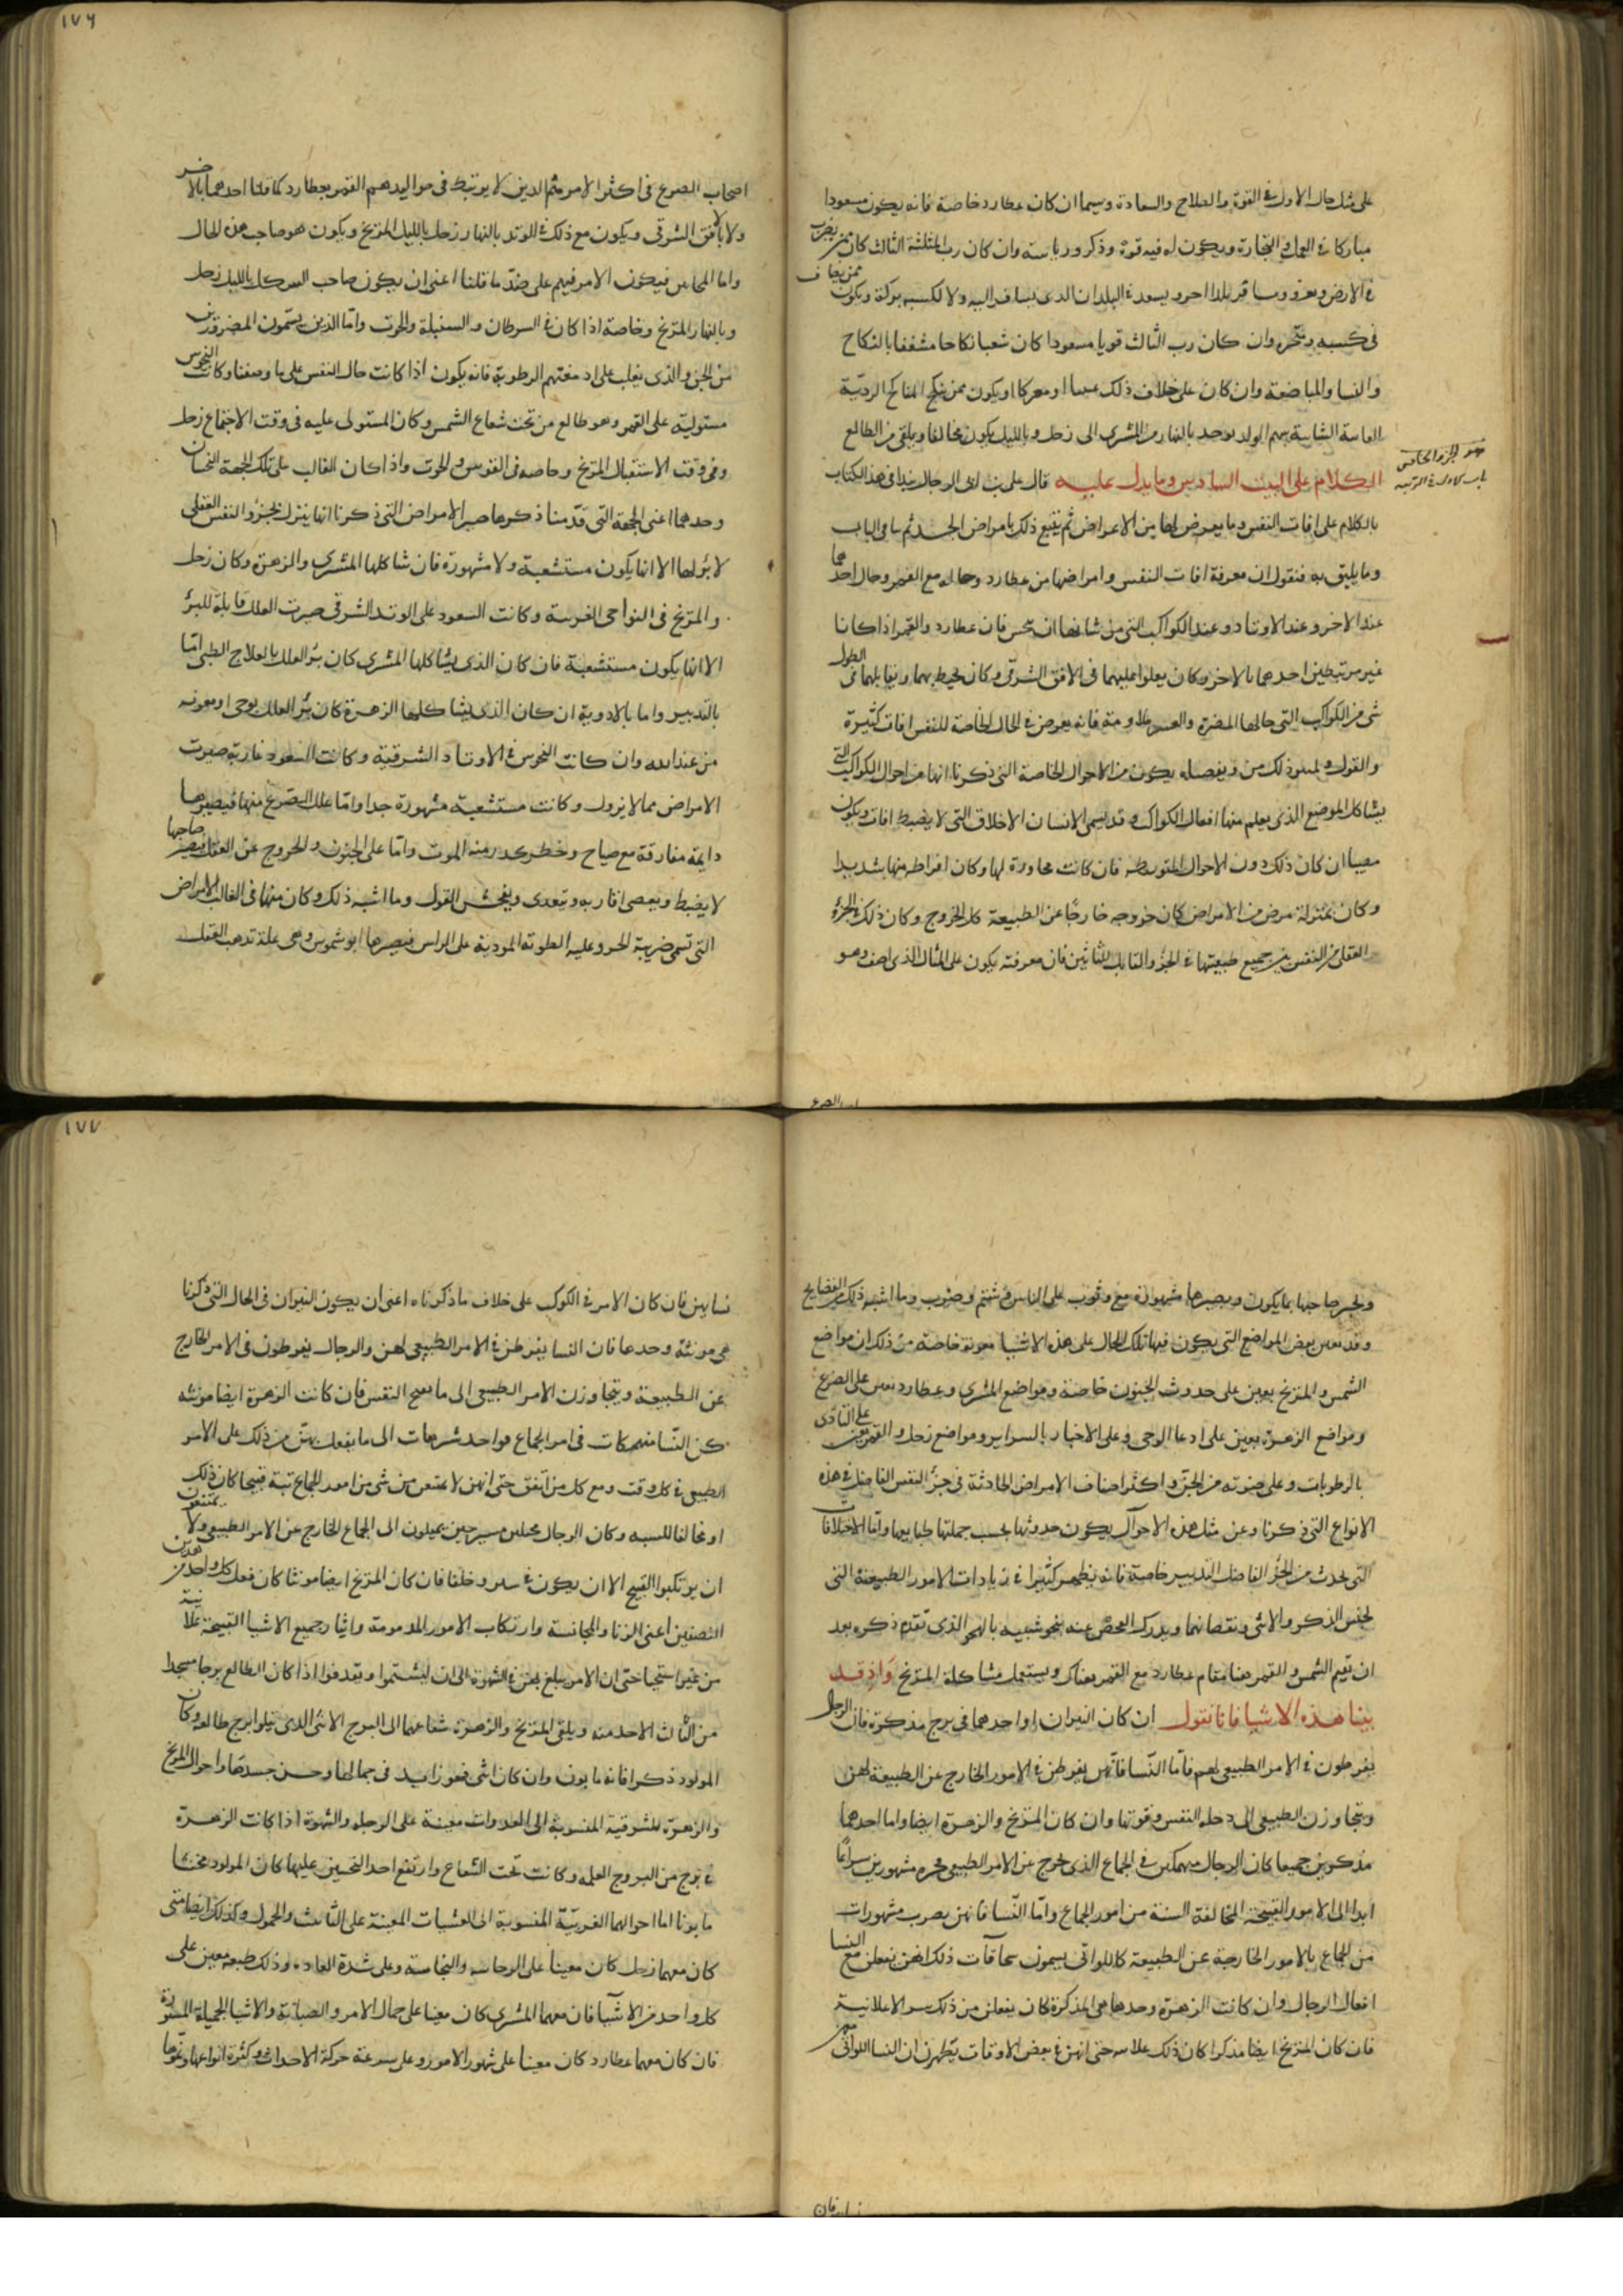 على مثل حال الاول في القوة والصلاح والسعادة وسيما ان كان عطارد خاصة فانه يكون مسعودا
مباركا في العمل والتجارة ويكون له فيه قوة وذكر ورياسة وان كان رب المثلثة الثالث كان ممن يضرب
في الارض ويغزو ويسافر بلدا اخر ويسعد في البلدان الذي يسافر اليه ولا لكسبه بركة ويكون
ممن يخاف
في كسبه وتحيره وان كان رب الثالث قويا مسعودا كان شعبا نكاحا مشغفا بالنكاح
والنسا والمباضعة وان كان على خلاف ذلك او يكون ممن ينكح المناكح الردية
سهم الولد يوخذ بالنهار من المشتري الى زحل وبالليل يكون مخالفا ويلقى من الطالع
الكلام على البيت السادس وما يدل عليه قال علي بن ابي الرجال نبدا في هذا الكتاب
هو الجزو الخامس
بالكلام على افات النفس وما يعرض لها من الاعراض ثم نتبع ذلك بامراض الجسد ثم باقي الباب
وما يليق به فنقول ان معرفة افات النفس وامراضها من عطارد وحاله مع القمر وحال احدهما
عند الاخر وعند الاوتاد وعند الكواكب التي من شانها ان تنحس فان عطارد والقمر اذا كانا
غير مرتبطين احدهما بالاخر وكان يعلوا عليهما في الافق الشرقي وكان يحيط بهما ويقابلهما في الطول
شي من الكواكب التي حالها المضرة فانه يعرض في الحال الخاصة للنفس افات كثيرة
والقول ذلك من يكون من الاحوال الخاصة التي ذكرنا انها من احوال الكواكب التي
يشاكل الموضع الذي يعلم منها افعال الكواكب وقد يسمى الانسان الاخلاق التي لا يضبط افات ويكون
مصيبا ان كان ذلك دون الاحوال المتوسطه فان كانت مجاورة لها وكان افراطه منها شديدا
وكان بمنزلة مرض من الامراض كان خروجه خارجا عن الطبيعة كل الخروج وكان ذلك في الجزء
العقلي من النفس جميع طبيعتها في الجزو القابل للتاثير فان معرفته يكون على المثال الذي اصف وهو
١٧٦
اصحاب الصرع في اكثر الامر هم الذين لا يرتبط في مواليدهم القمر بعطارد كما قلنا احدهما بالاخر
ولا بالافق الشرقي ويكون مع ذلك في الوتد بالنهار زحل بالليل المريخ ويكون هو صاحب هذه الحال
واما المجانين فيكون الامر فيهم على ضد ما قلنا اعني ان يكون صاحب الشكل بالليل زحل
وبالنهار المريخ وخاصة اذا كان في السرطان والسنبلة والحوت واما الذين يسمون المضرورين
من الجن والذي يغلب على ادمغتهم الرطوبة فانه يكون اذا كانت حال النفس على ما وصفنا وكانت النحوس
مستولية على القمر وهو طالع من تحت شعاع الشمس وكان المستولى عليه في وقت الاجتماع زحل
وفي وقت الاستقبال المريخ وخاصه في القوس والحوت واذا كان الغالب على تلك الجهة النحسان
وحدهما اعني الجهة التي قدمنا ذكرها صير الامراض التي ذكرنا انها ينزل بجزو النفس العقلى
لا برؤ لها الا انها يكون مستشعبة ولا مشهورة فان شاكلها المشتري والزهرة وكان زحل
والمريخ في النواحي الغربية وكانت السعود على الوتد الشرقي صيرت العلل قابلة للبرؤ
الا انها يكون مستشعبة فان كان الذي يشاكلها المشتري كان برؤ العلل بالعلاج الطبي اما
بالتدبير واما بالادوية ان كان الذي يشاكلها الزهرة كان برؤ العلل بوحى او معونه
من عند الله وان كانت النحوس في الاوتاد الشرقية وكانت السعود غاربة صيرت
الامراض مما لا يزول وكانت مستشعبة مشهورة جدا واما علل الصرع منها فيصيرها
دايمة مفارقة مع صياح وخطر كدر منه الموت واما على الجنون والخروج عن العقل فيصير صاحبها
لا يضبط ويعصى اقاربه ويتعدى ويفحش القول وما اشبه ذلك وكان منها في الغالب الامراض
التي تسمى ضريبة الحر وغلبة الطوبة المودية على الراس فيصيرها ابو شموس وهي علة تدهب العقل
اب الصرع
ويخبر صاحبها بما يكون ويصيرها مشهورة مع وثوب على الناس وشتم وضرب وما اشبه ذلك من الفضايح
وقد تعين بعض المواضع التي يكون فيها تلك الحال على هذه الاشيا معونة خاصة من ذلك ان مواضع
الشمس والمريخ يعين على حدوث الجنون خاصة ومواضع المشتري وعطارد تعين على الصرع
ومواضع الزهرة يعين على ادعا الوحى وعلى الاخبار بالسراير ومواضع زحل والقمر يعين على التاذى
بالرطوبات وعلى من الجن واكثر اصناف الامراض الحادثة في جزء النفس الفاضل في هذه
الانواع التي ذكرنا وعن مثل هذه الاحوال يكون حدوثها بحسب جملتها طبايعها واما الاختلافات
التي تحدث من الجزء الفاضل التدبير خاصة فانه يظهر كثيرا في زيادات الامور الطبيعية التي
لجنس الذكر والانثى ونقصانهما ويدرك الفحص عنه بنحو شبيه بالنحو الذي تقدم ذكره بعد
ان تقيم الشمس والقمر هنا مقام عطارد مع القمر هناك ويستعمل مشاكلة المريخ واذ قد
بينا هذه الاشيا فانا نقول ان كان النيران او احدهما في برج مذكرة فان الرجال
يفرطون في الامر الطبيعي لهم فاما النسا فانهن يفرطن في الامور الخارج عن الطبيعة لهن
ويتجاوزن الطبيعي الى رجلة النفس وقوتها وان كان المريخ والزهرة ايضا واما احدهما
مذكرين جميعا كان الرجال منهمكين في الجماع الذي يخرج عن الامر الطبيعي فجرة مشهورين سراعا
ابدا الى الامور القبيحة المخالفة السنة من امور الجماع واما النسا فانهن يصرن مشهورات
من الجماع بالامور الخارجة عن الطبيعة كاللواتي يسمون سحاقات ذلك لانهن يفعلن مع النسا
افعال الرجال وان كانت الزهرة وحدها هي المذكرة كان يفعلن من ذلك سرا لا علانية
فان كان المريخ ايضا مذكرا كان ذلك علانيه حتى انهن في بعض الاوقات يظهرن ان النسا اللواتي
١٧٧
نسايهن فان كان الامر في الكوكب على خلاف ما ذكرناه اعني ان يكون النيران في الحال التي ذكرنا
هي مونثة وحدها فان النسا يفرطن في الامر الطبيعي لهن والرجال يفرطون في الامر الخارج
عن الطبيعة ويتجاوزن الامر الطبيعي الى النفس فان كانت الزهرة ايضا مونثه
كن النسا منهمكات في امر الجماع فواحد شرهات الى ما يفعل بهن من ذلك على الامر
الطبيعي في كل وقت ومع كل من اتفق حتى انهن لا يمتنعن من شي من امور الجماع تبة قبيحا كان ذلك
او مخالفا للسنه وكان الرجال حين يميلون الى الجماع الخارج عن الامر الطبيعي ولا يمتنعون
ان يرتكبوا القبيح الا ان يكون في ستر وخلفا فان كان المريخ ايضا مونثا كان فعل كل واحد من هذين
الصنفين اعني الزنا والمجانسة وارتكاب الامور المذمومة واثيار جميع الاشيا القبيحة علانية
من غير استحيا حتى ان الامر يبلغ بهن في الشهوة الى ان يشتموا ويقدفوا اذا كان الطالع برجا مجسدا
من الثالث الاحد منه ويلقى المريخ والزهرة شعاعهما الى البرج الانثى الذي يتلوا برج طالعه وكان
المولود ذكرا فانه مابون وان كان انثى فهو زايد في جمالها وحسن جسدها واحوال المريخ
والزهرة المشرقية المنسوبة الى الغدوات معينة على الرجله والشهوة اذا كانت الزهرة
في برج من البروج وكانت تحت الشعاع وارتفع احد النحسين عليها كان المولود مخنثا
مابونا اما احوالهما الغربية المنسوبة الى العشيات المعينة على التانيث والخمول وكذلك ايضا متى
كان معهما زحل كان معينا على والنجاسة وعلى شدة وذلك طبعه معين على
كل واحد من الاشيا فان معهما المشتري كان معينا على جمال الامر والصيانة والاشيا الجميلة المستورة
فان كان معهما عطارد كان معينا على شهور الامور وعلى سرعة حركة الاحداث وكثرة انواعها
نسا فان